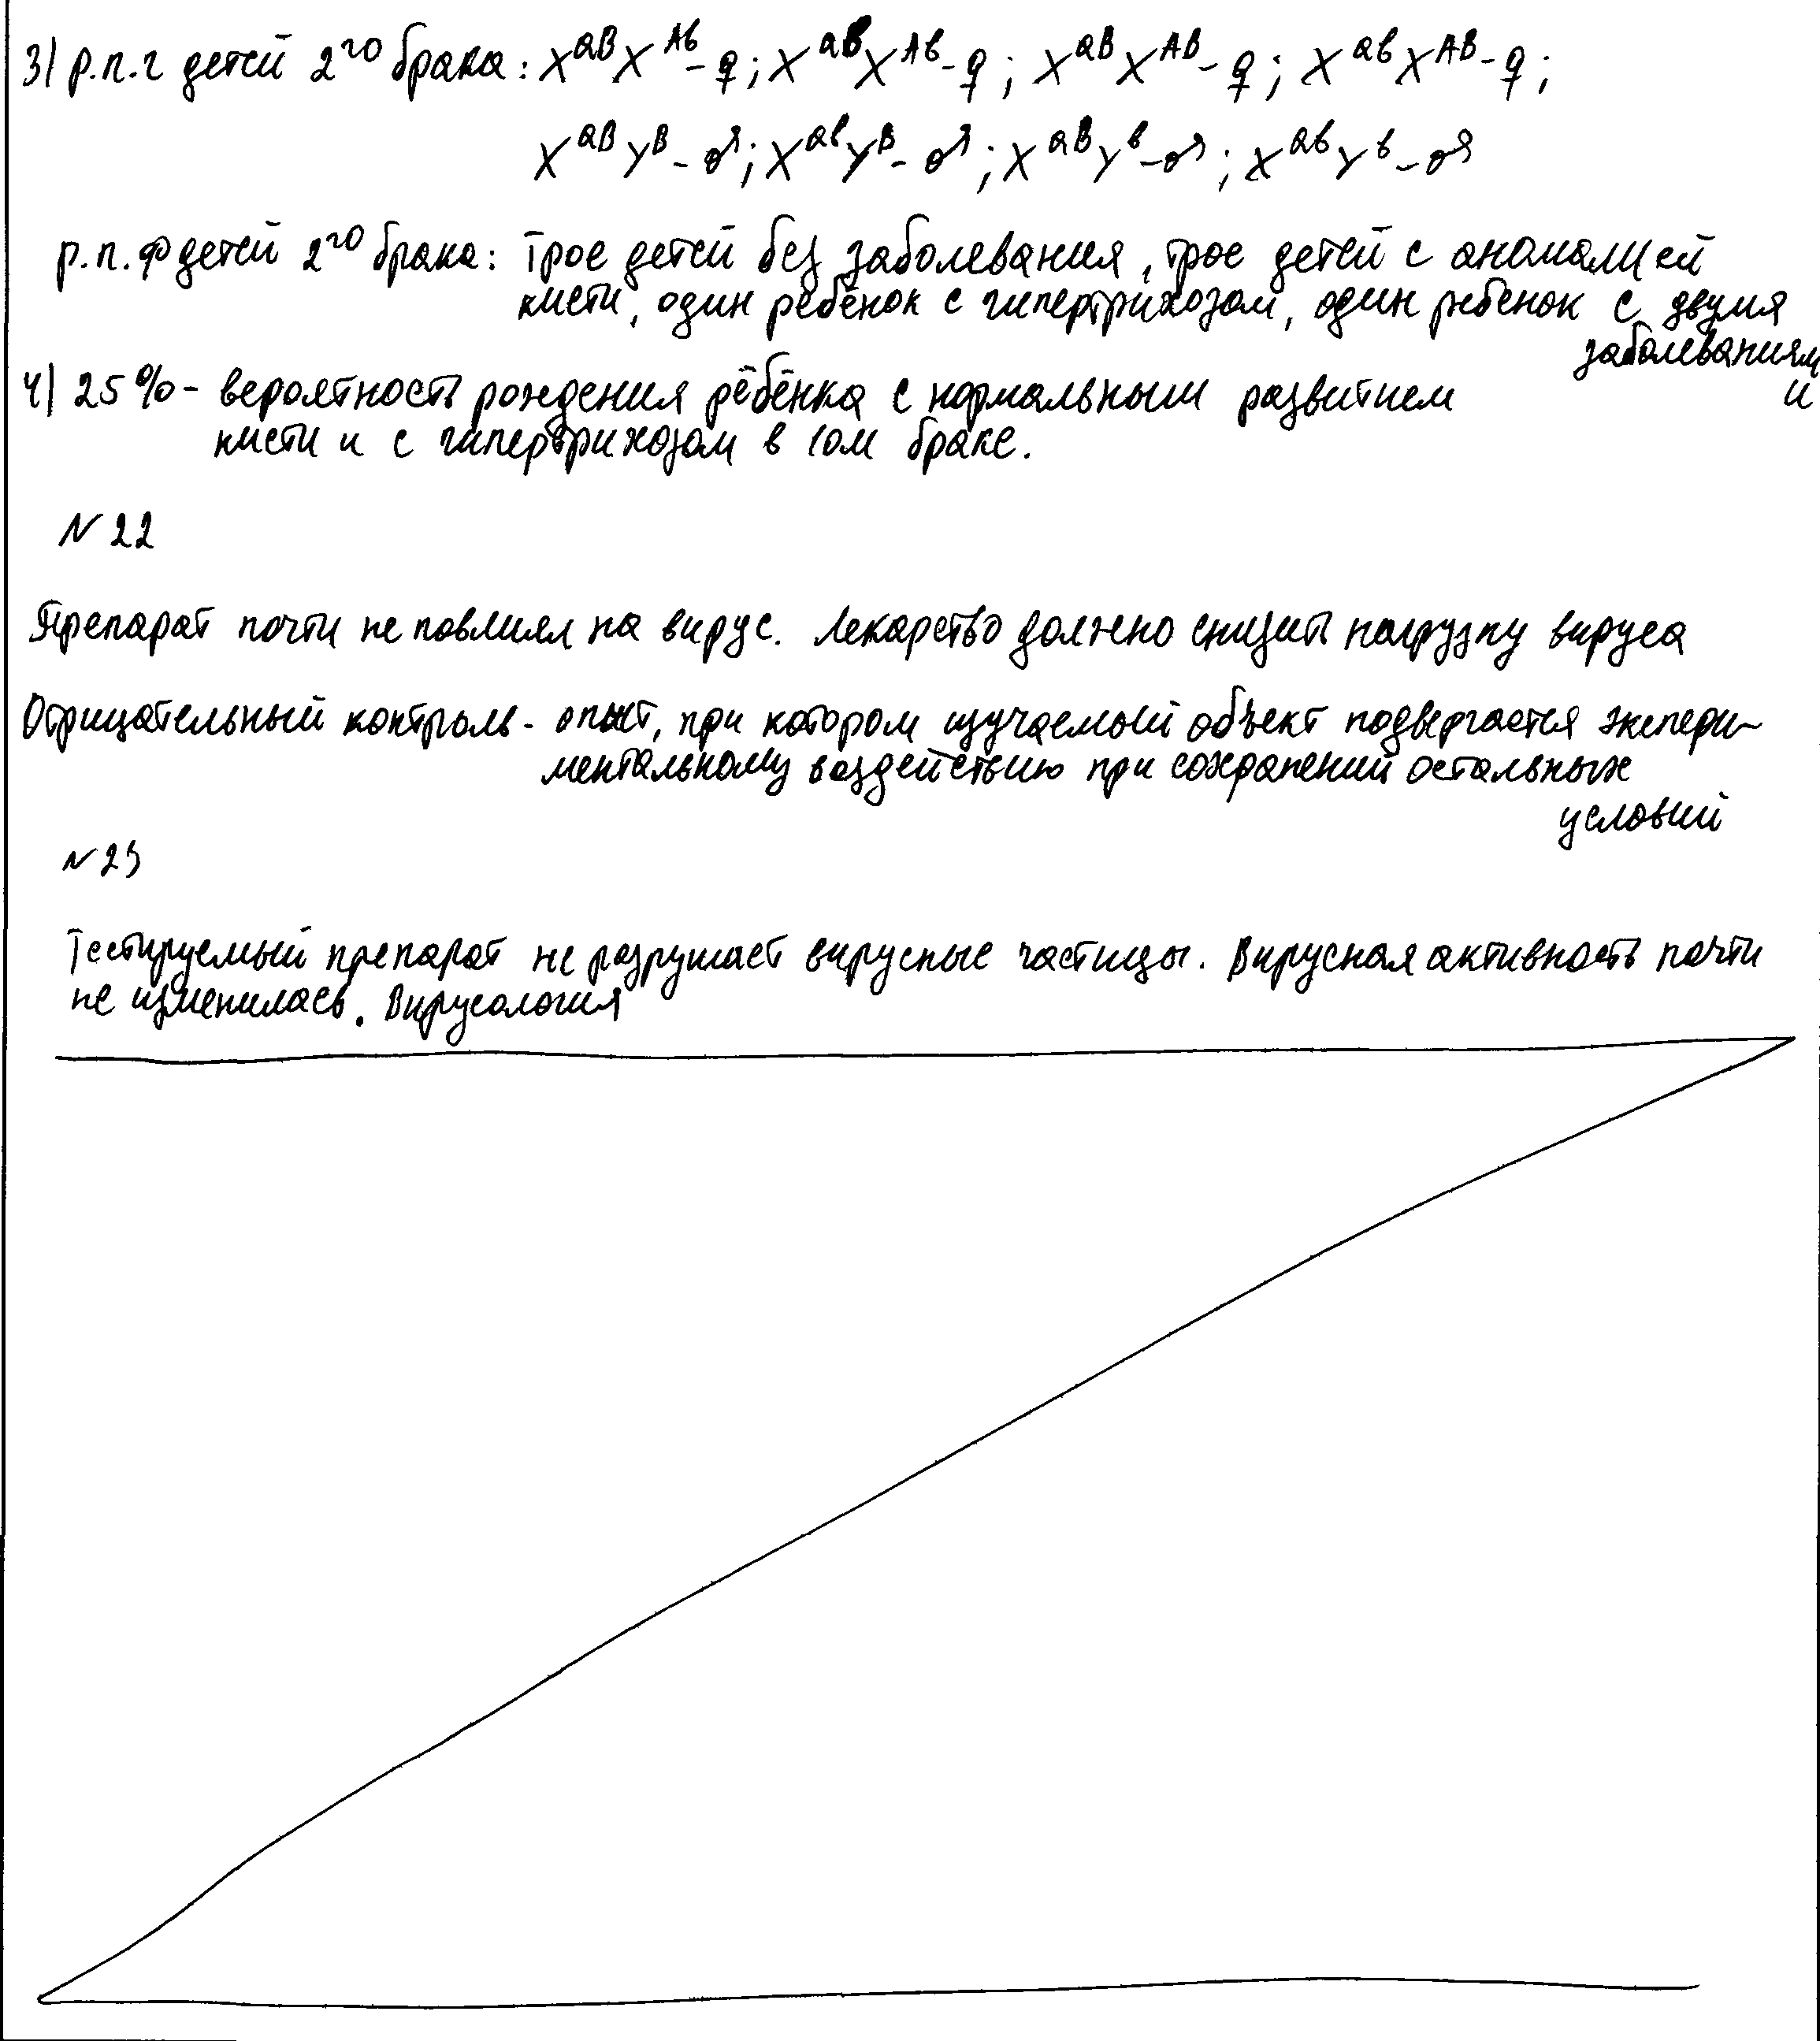 3) р.п.г детей 2го брака: XаВXАв - ♀; XавXАв - ♀; XаВXАВ - ♀; XавXАВ - ♀;
XаВYВ - ♂; XавYВ - ♂; XаВYв - ♂; XавYв - ♂
р.п.ф детей 2го брака: Трое детей без заболевания, трое детей с аномалией
кисти, один ребёнок с гипертрихозом, один ребенок с двумя
заболеваниям
и
4) 25% - вероятность рождения ребёнка с нормальным развитием
кисти и с гипертрихозом в 1ом браке.
N 22
Препарат почти не повлиял на вирус. Лекарство должно снизить нагрузку вируса
Отрицательный контроль - опыт, при котором изучаемый объект подвергается экспери-
ментальному воздействию при сохранений остальных
условий
N 23
Тестируемый препарат не разрушает вирусные частицы. Вирусная активность почти
не изменилась. Вирусология